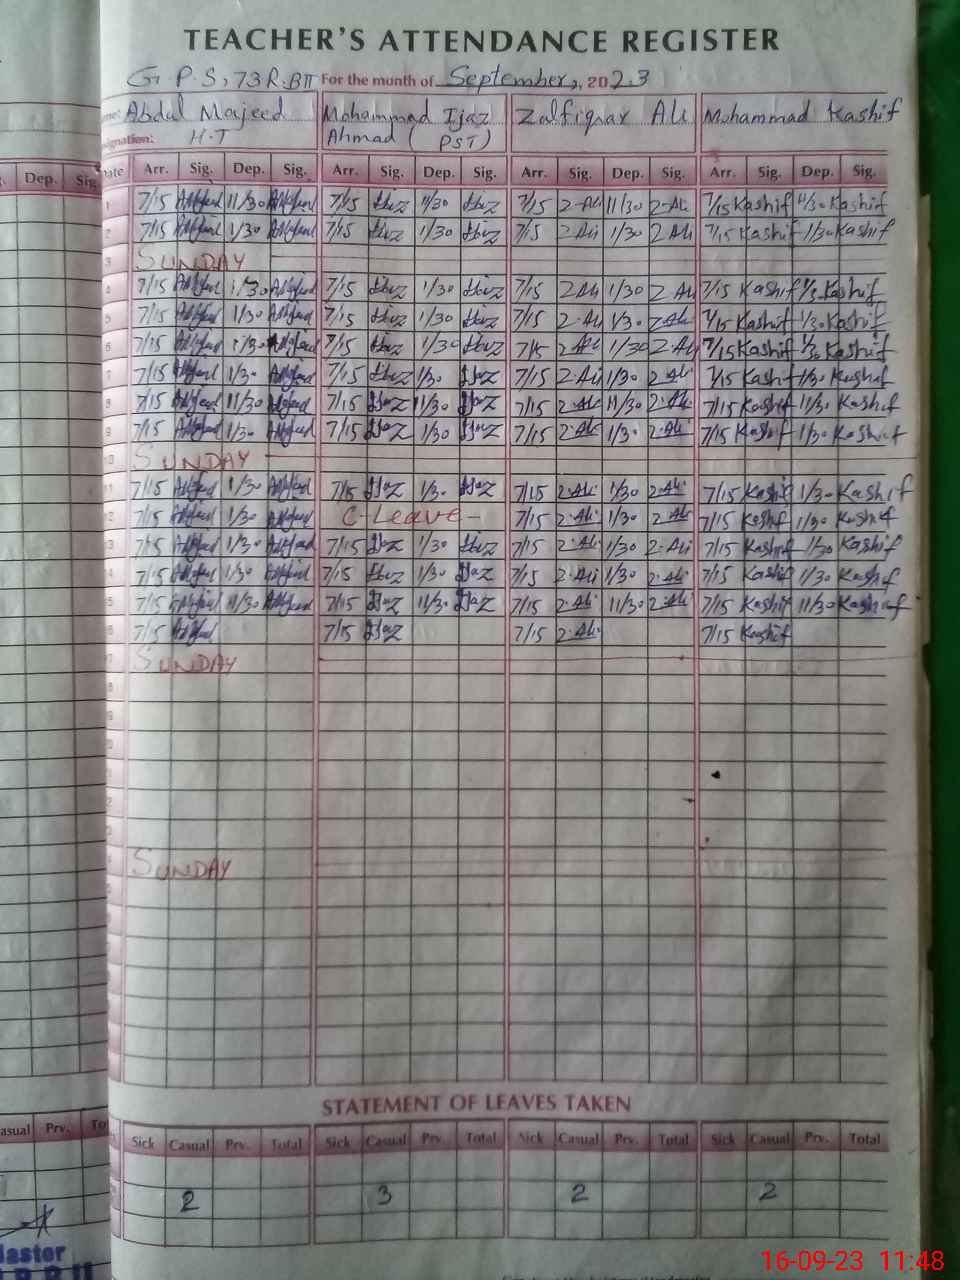 TEACHER'S ATTENDANCE REGISTER
G.P.S, 73 R.BII For the month of September, 2023
Abdul Majeed Mohammad Ijaz Zalfiqrar Ali Mohammad Kashif
H.T Ahmad (PST)
Date Arr. Sig. Dep. Sig. Arr. Sig. Dep. Sig. Arr. Sig. Dep. Sig. Arr. Sig. Dep. Sig.
Dep. Sig.
1 7/15 11/30 7/15 Ijaz 11/30 Ijaz 7/15 Z-Ali 11/30 Z-Ali 7/15 Kashif 11/30 Kashif
2 7/15 1/30 7/15 Ijaz 1/30 Ijaz 7/15 Z Ali 1/30 Z Ali 7/15 Kashif 1/30 Kashif
3 SUNDAY
4 7/15 1/30 7/15 Ijaz 1/30 Ijaz 7/15 Z Ali 1/30 Z Ali 7/15 Kashif 1/30 Kashif
5 7/15 1/30 7/15 Ijaz 1/30 Ijaz 7/15 Z-Ali 1/30 Z Ali 7/15 Kashif 1/30 Kashif
6 7/15 1/30 7/15 Ijaz 1/30 Ijaz 7/15 Z-Ali 1/30 Z-Ali 7/15 Kashif 1/30 Kashif
7 7/15 1/30 7/15 Ijaz 1/30 Ijaz 7/15 Z-Ali 1/30 Z-Ali 7/15 Kashif 1/30 Kashif
8 7/15 11/30 7/15 Ijaz 11/30 Ijaz 7/15 Z-Ali 11/30 Z-Ali 7/15 Kashif 11/30 Kashif
9 7/15 1/30 7/15 Ijaz 1/30 Ijaz 7/15 Z-Ali 1/30 Z-Ali 7/15 Kashif 1/30 Kashif
10 SUNDAY
11 7/15 1/30 7/15 Ijaz 1/30 Ijaz 7/15 Z-Ali 1/30 Z-Ali 7/15 Kashif 1/30 Kashif
7/15 1/30 C-Leave- 7/15 Z-Ali 1/30 Z-Ali 7/15 Kashif 1/30 Kashif
7/15 1/30 7/15 Ijaz 1/30 Ijaz 7/15 Z-Ali 1/30 Z-Ali 7/15 Kashif 1/30 Kashif
7/15 1/30 7/15 Ijaz 1/30 Ijaz 7/15 Z-Ali 1/30 Z-Ali 7/15 Kashif 1/30 Kashif
7/15 11/30 7/15 Ijaz 11/30 Ijaz 7/15 Z-Ali 11/30 Z-Ali 7/15 Kashif 11/30 Kashif
7/15 7/15 Ijaz 7/15 Z-Ali 7/15 Kashif
SUNDAY
SUNDAY
STATEMENT OF LEAVES TAKEN
Sick Casual Prv. Total Sick Casual Prv. Total Sick Casual Prv. Total Sick Casual Prv. Total
Prv.
2 3 2 2
16-09-23 11:48